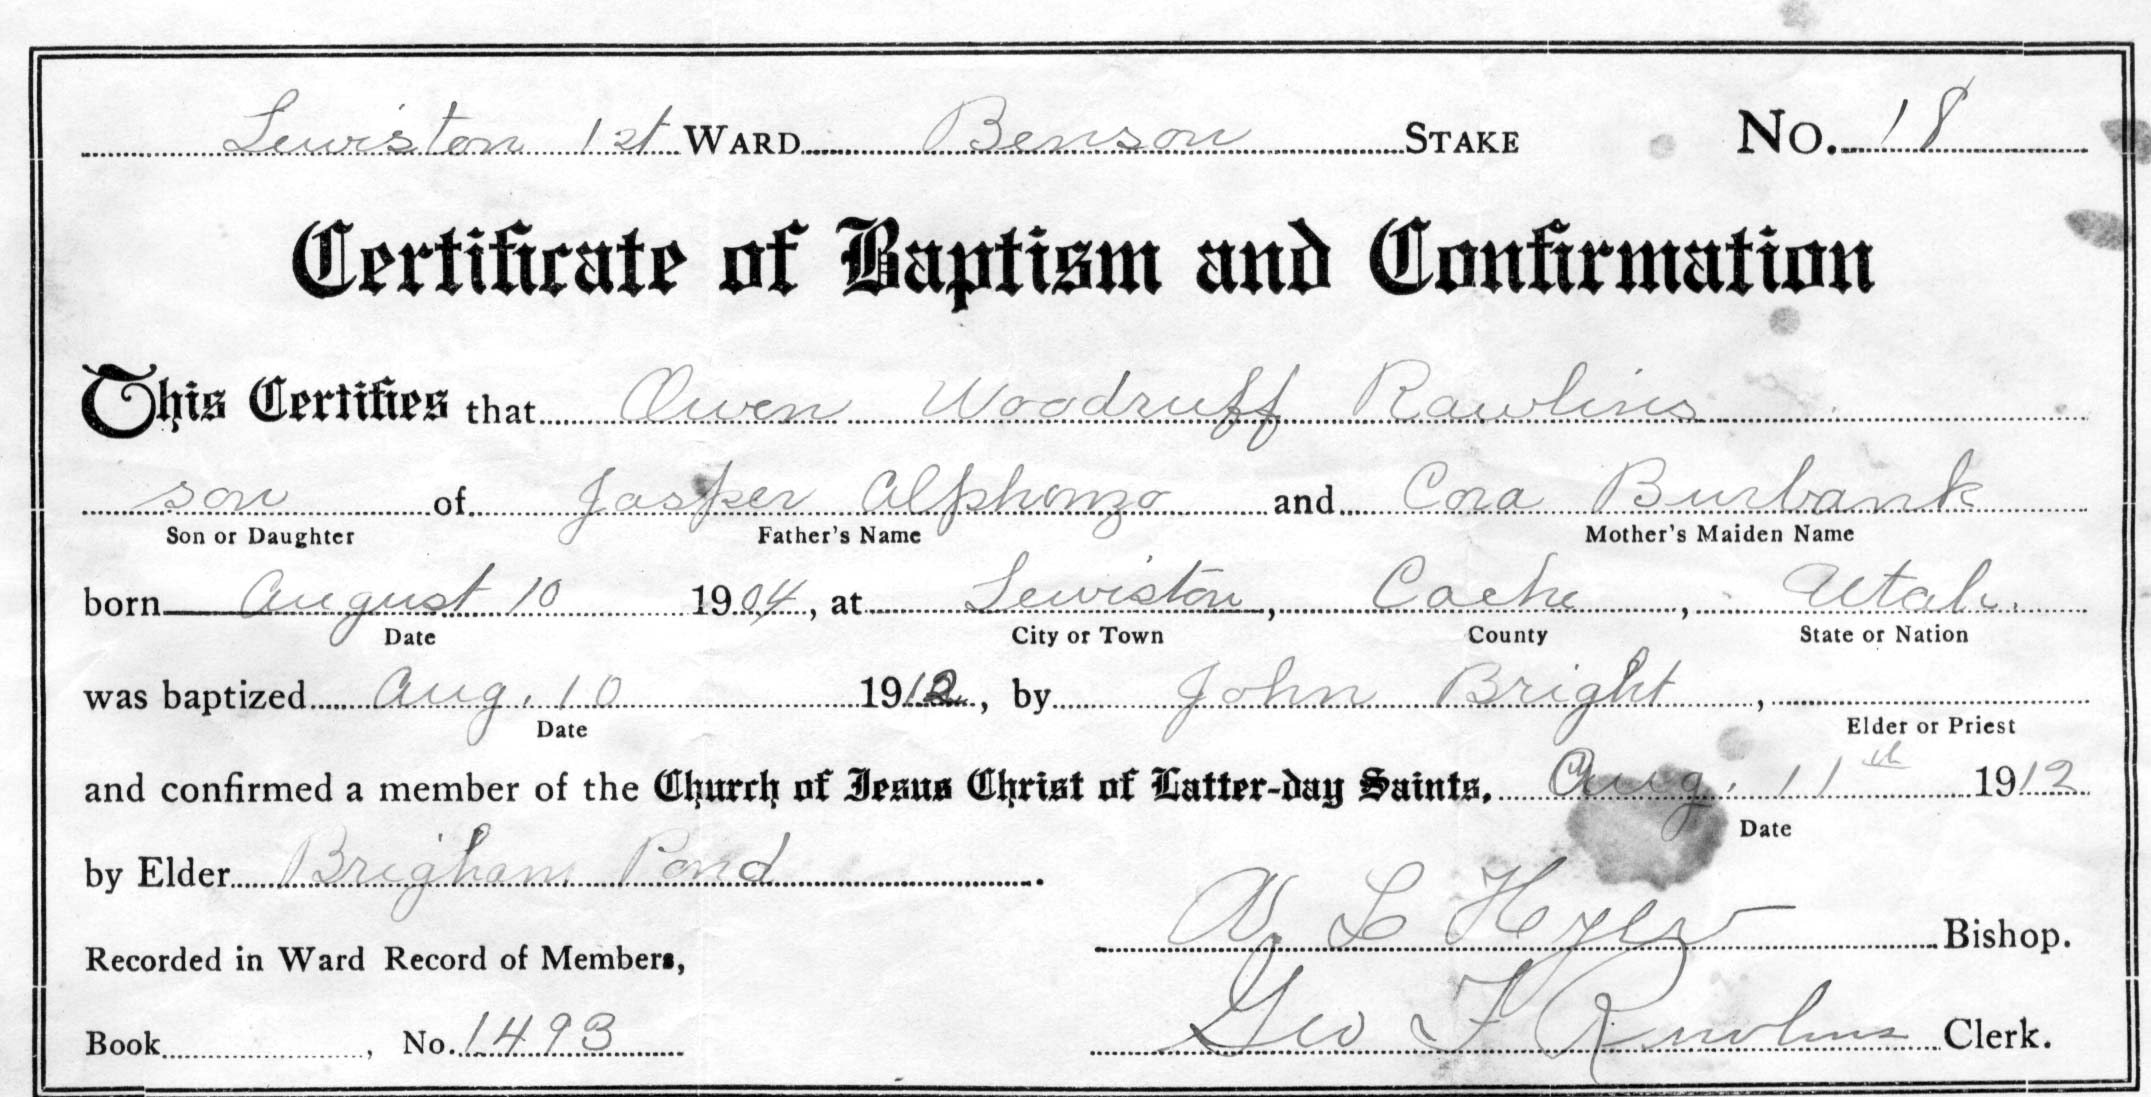 Lewiston 1st WARD Benson STAKE No. 18
Certificate of Baptism and Confirmation
This Certifies that Owen Woodruff Rawlins
son of Jasper Alphonzo and Cora Burbank
Son or Daughter Father's Name Mother's Maiden Name
born August 10 1904, at Lewiston, Cache, Utah.
Date City or Town County State or Nation
was baptized Aug. 10 1912, by John Bright,
Date Elder or Priest
and confirmed a member of the Church of Jesus Christ of Latter-day Saints, Aug. 11th 1912
Date
by Elder Brigham Pond.
L Hyer Bishop.
Recorded in Ward Record of Members,
Book , No. 1493 Geo F Rawlins Clerk.